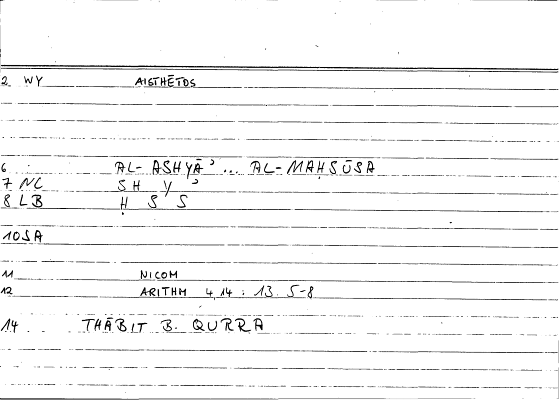 2 WY AISTHĒTOS
6 AL-ASHYĀʾ ... AL-MAḤSŪSA
7 NC SH Y ʾ
8 LB Ḥ S S
10 SA
11 NICOM
12 ARITHM 4, 14 : 13. 5-8
14 THĀBIT B. QURRA